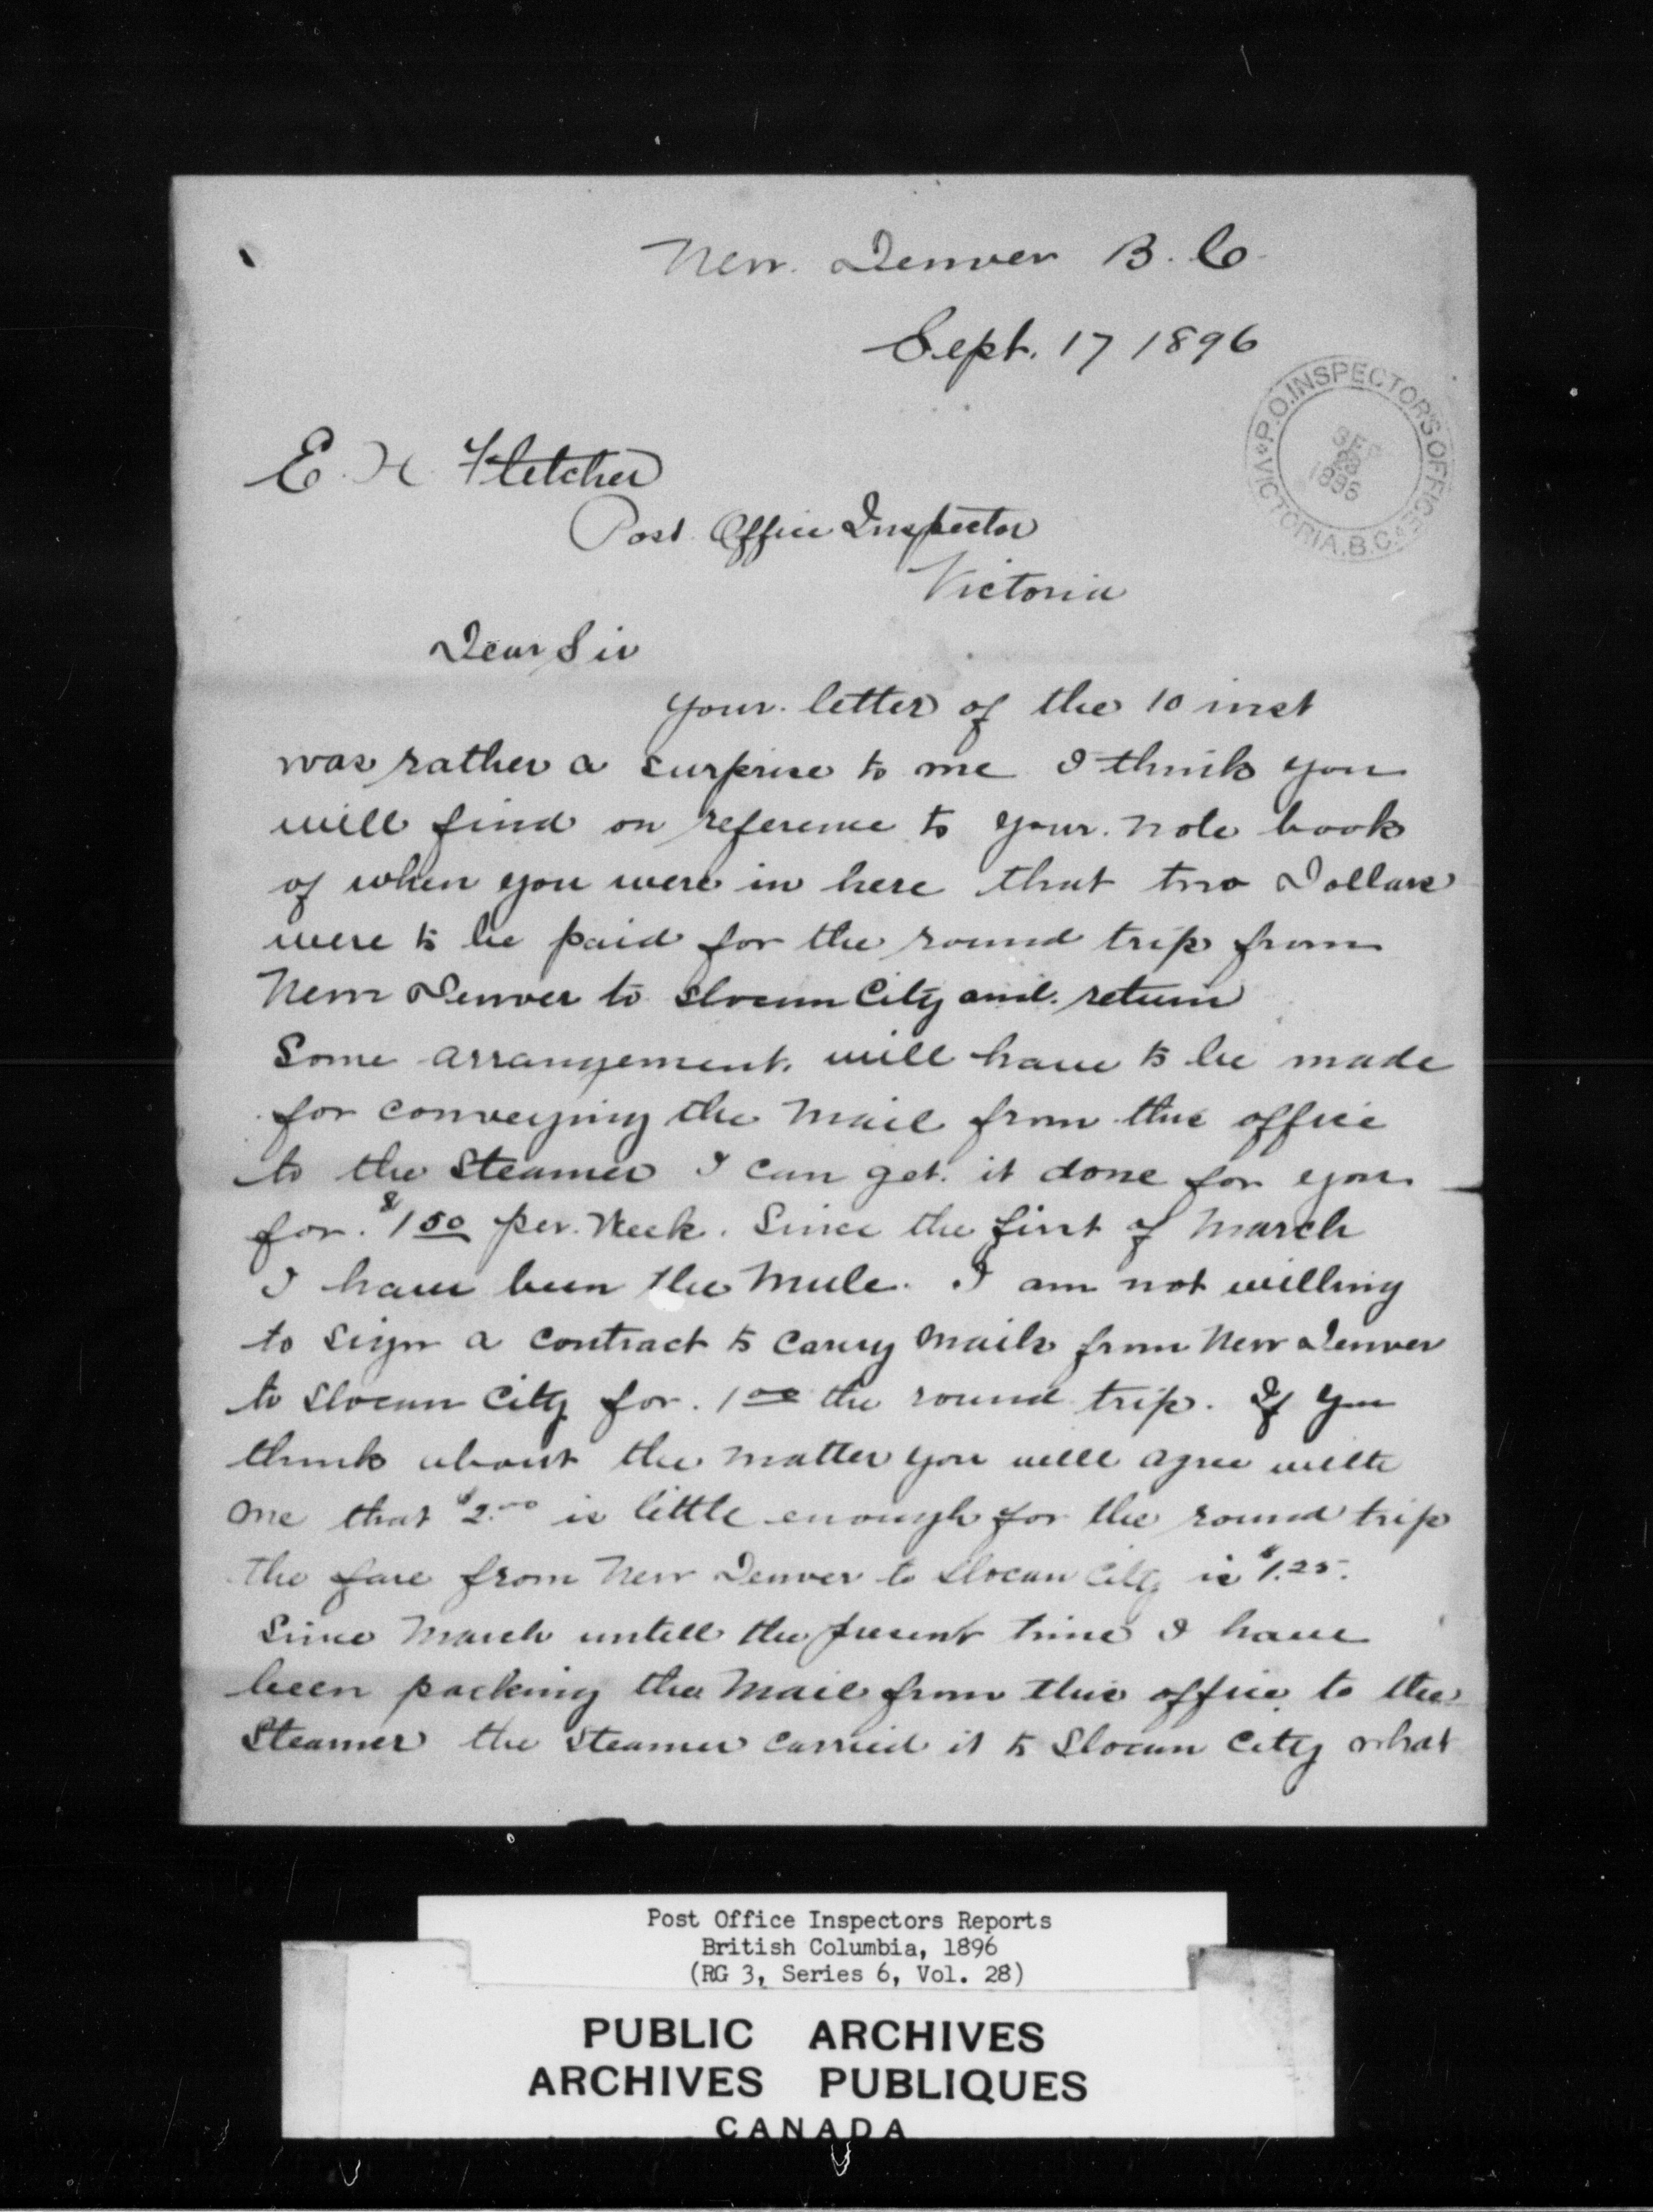 New Denver B. C.
Sept. 17 1896
P.O. INSPECTOR'S OFFICE
VICTORIA. B.C.
SEP
1896
E. H. Fletcher
Post Office Inspector
Victoria
Dear Sir
Your letter of the 10 inst
was rather a surprise to me I think you
will find on reference to your note book
of when you were in here that two Dollars
were to be paid for the round trip from
New Denver to Slocan City and return
Some arrangement will have to be made
for conveying the Mail from this office
to the Steamer I can get it done for you
for $1 50 per Week. Since the first of March
I have been the Mule. I am not willing
to sign a contract to carry Mails from New Denver
to Slocan City for 1 00 the round trip. If you
think about the matter you will agree with
me that $2.00 is little enough for the round trip
the fare from New Denver to Slocan City is $1.25.
Since March untill the present time I have
been packing the Mail from this office to the
Steamer the Steamer carried it to Slocan City what
Post Office Inspectors Reports
British Columbia, 1896
(RG 3, Series 6, Vol. 28)
PUBLIC ARCHIVES
ARCHIVES PUBLIQUES
CANADA